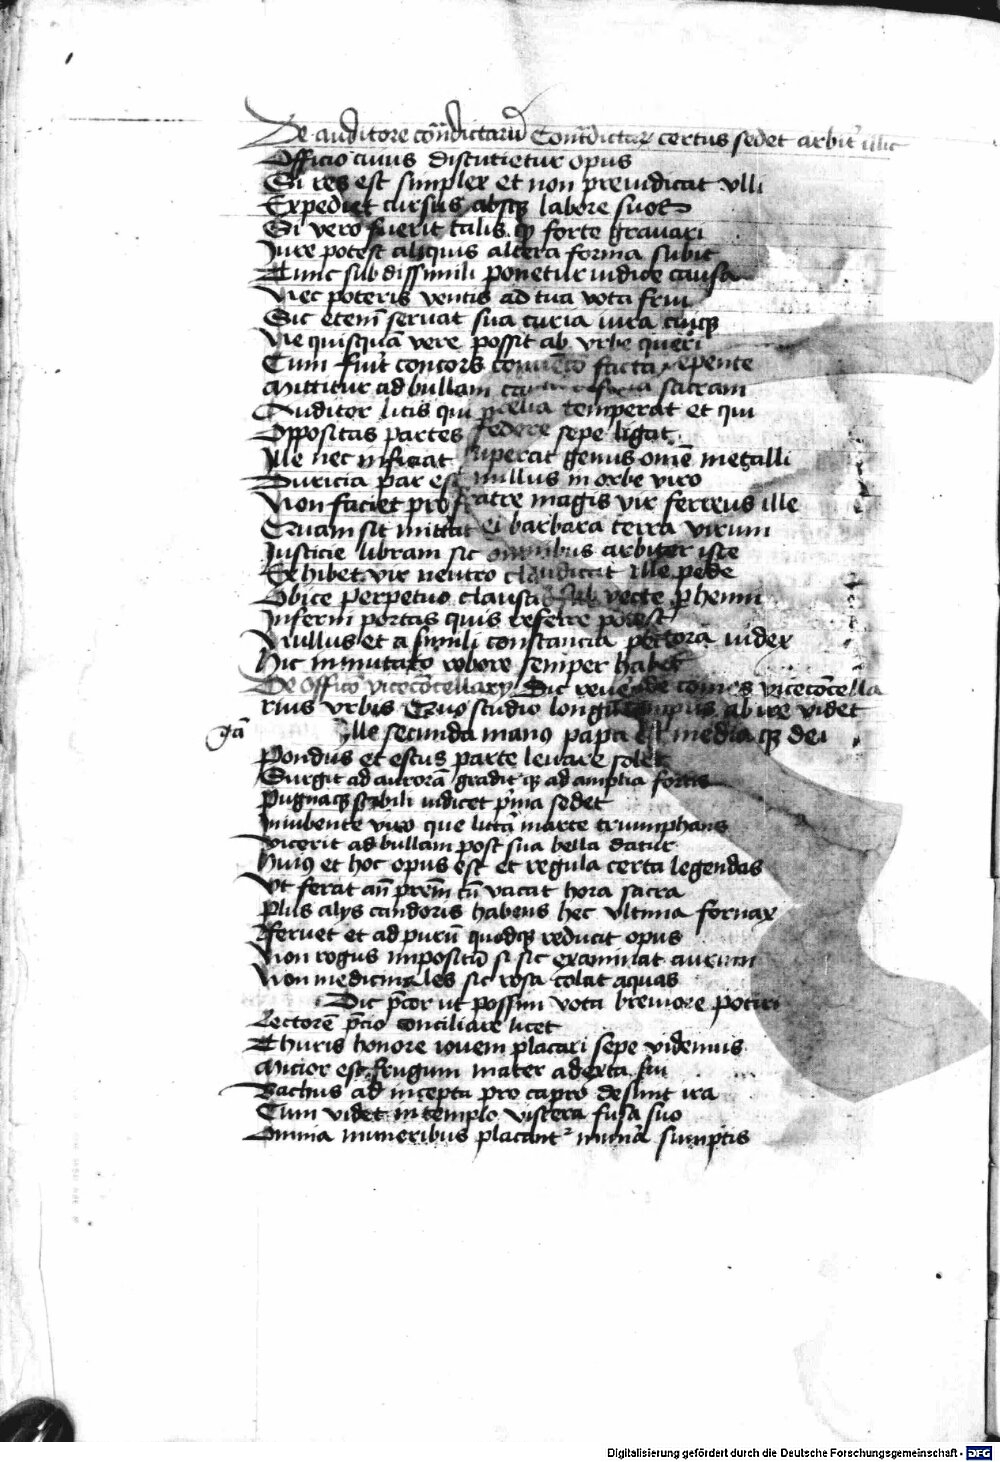 De auditore cont̄dictarū Cont̄dictar certus sedet arbit̓ illic
Officio cuius discutietur opus
Si res est simplex et non preiudicat vlli
Expediet cursus absqꝫ labore suos
Si vero fuerit talis qꝫ forte gravari
Jure potest aliquis altera forma subit
Tunc sub dissimili ponetur iudice causa
Nec poteris ventis ad tua vota frui
Sic eten̄ servat sua curia iura cuiqꝫ
Ne quisquā vere possit ab vrbe queri
Cum fuit̓ concors facta repente
Mittitur ad bullam sacram
Auditor litis qui prelia temperat et qui
Oppositas partes federe sepe ligat
Ille nec inficiat superat genus om̄e metalli
Duricia par est nullus in orbe viro
Non faciet pro fratre magis vir ferreus ille
Quam sit mittat ei barbara terra virum
Justicie libram sic omnibus arbiter iste
Exhibet vir neutro claudicat ille pede
Obice perpetuo clausas sub vecte p̱henni
Inferni portas quis referre potest
Nullus et a simili constancia pectora iudex
Hic inmutato robore semper habet
De officō vicecōcellarij Dic reverende comes vicecōcella
rius vrbis Quo studio longū tempus abire videt
gā Ille secunda manꝰ pape est mediaqꝫ dei
Pondus et estus parte levare solet
Surgit ad aurorā gradit̓qꝫ ad amplia fortis
Pugnaqꝫ stabili iudicet p̓ma sedet
In iubente viro que littā marte triumphans
Vicerit ad bullam post sua bella datur
Huiꝰ et hoc opus est et regula certa legendas
Vt ferat an̄ prem̄ cū vacat hora sacra
Plus alijs candoris habens hec vltima fornax
Fervet et ad purū quodqꝫ reducit opus
Non rogus impositū si sic examinat aurum
Non medicinales sic rosa colat aquas
Dic p̄cor ut possim vota breviore potiri
Lectorē p̄cio conciliare licet
Thuris honore iovem placari sepe videmus
Micior est frugum mater adexta sui
Bachus ad incepta pro capro desunt ira
Cum videt in templo viscera fusa suo
Omnia muneribus placantᷣ mun̓a sumptis
Digitalisierung gefördert durch die Deutsche Forschungsgemeinschaft - DFG